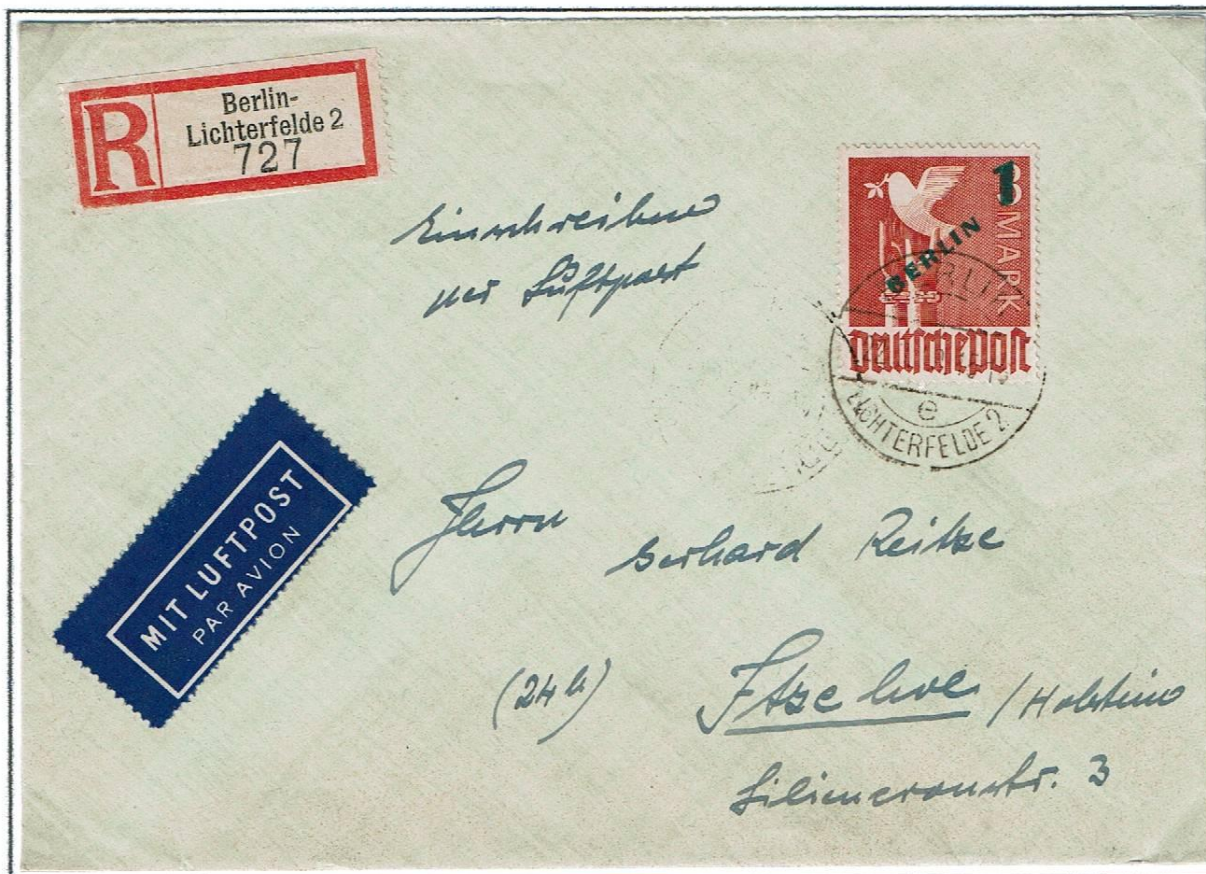 R
Berlin-
Lichterfelde 2
727
Einschreiben
per Luftpost
1
3 MARK
BERLIN
Deutsche Post
BERLI
e
LICHTERFELDE 2
MIT LUFTPOST
PAR AVION
Herrn
Gerhard Reitze
(24b)
Itzehoe / Holstein
Liliencronstr. 3